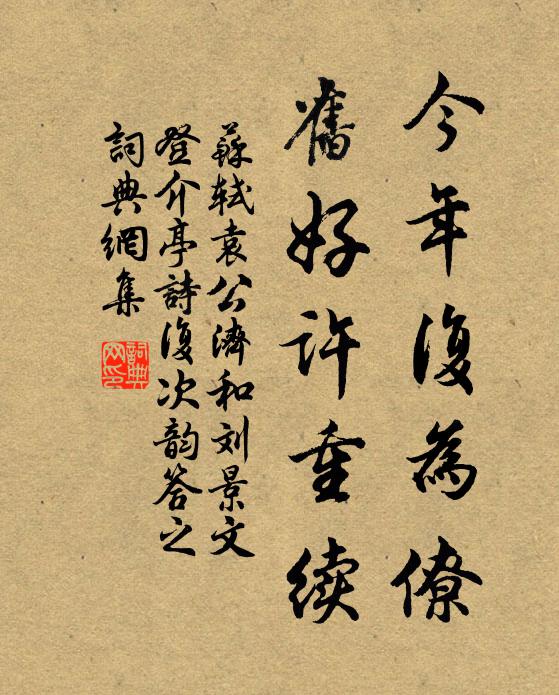 今年復為僚
舊好許重续
蘇軾袁公濟和刘景文
登介亭詩復次韵答之
詞典網集
詞典
网印